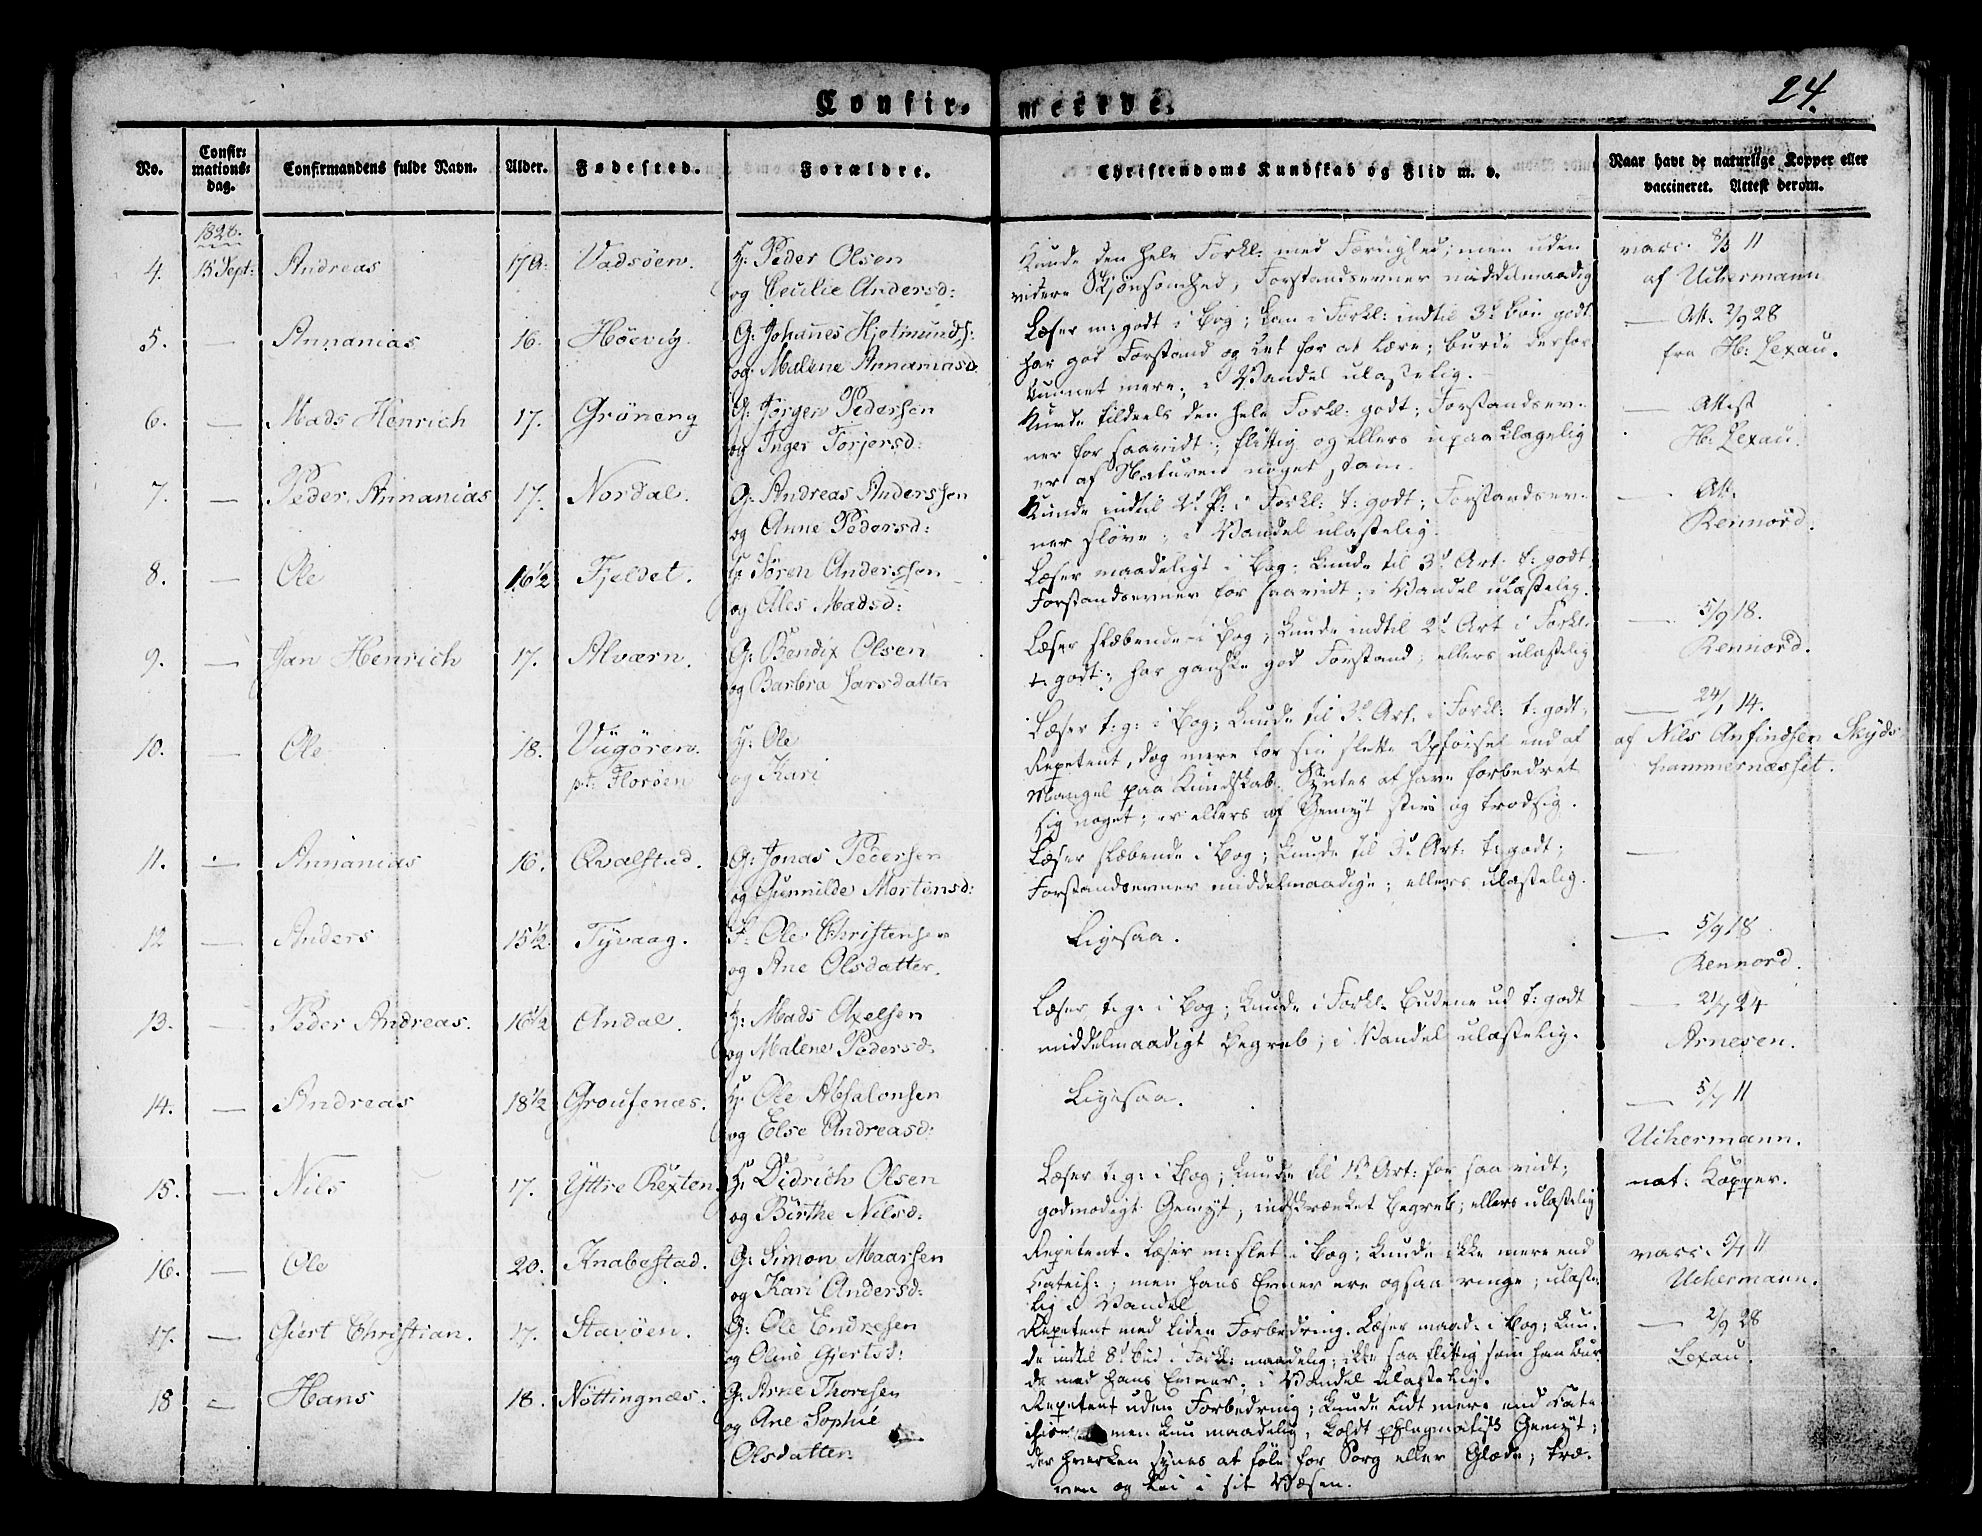 Confir- merede.
24.
No. Confir-mations-dag. Confirmandens fulde Navn. Alder. Fødested. Forældre. Christendoms Kundskab og Flid m. v. Naar havt de naturlige Kopper eller vaccineret. Attest derom.
1828.
4. 15 Sept: Andreas 17 A: Vadsöen. H: Peder Olsen
og Cecilie Andersd:
Kunde den hele Forkl: med Færdighed; men uden
videre Skjönsomhed, Forstandsevner middelmaadig
vacc. 8/3 11
af Uchermann
5. — Annanias 16. Höevig. G: Johannes Hjelmunds:
og Malene Annaniasd.
Læser m: godt i Bog; kan i Forkl: indtil 3d Bön godt
har god Forstand og let for at lære; burde derfor
kunnet mere; i Vandel ulastelig.
— Att. 2/9 28
fra H: Lexau.
6. — Mads Henrich 17. Gröneng G: Jörgen Pedersen
og Inger Torjersd:
Kunde tildeels den hele Forkl: godt; Forstandsev-
ner for saavidt; flittig og ellers upaaklagelig
er af Naturen noget stam.
— Attest
H: Lexau.
7. — Peder Annanias 17. Nordal. G: Andreas Anderssen
og Anne Pedersd:
Kunde indtil 2d P: i Forkl: t: godt; Forstandsev-
ner slöve; i Vandel ulastelig.
— Att.
Rennord.
8. — Ole 16½ Fjeldet. H: Sören Anderssen
og Olles Madsd:
Læser maadeligt i Bog; kunde til 3d Art. t: godt
Forstandsevner for saavidt; i Vandel ulastelig.
9. — Jan Henrich 17. Alværn. G: Bendix Olsen
og Barbra Larsdatter
Læser slæbende i Bog; kunde indtil 2d Art i Forkl:
t: godt; har ganske god Forstand; ellers ulastelig
— 5/9 18.
Rennord.
10. — Ole 18. Vugören.
pt: Floröen
H: Ole
og Kari
Læser t: g: i Bog; kunde til 3d Art. i Forkl: t: godt,
Repetent, dog mere for sin slette Opförsel end af
Mangel paa Kundskab. Syntes at have forbedret
sig noget; er ellers af Gemyt stiv og trodsig.
— 24/1 14.
af Nils Anfindsen Skyds
hammernæsset.
11. — Annanias 16. Qvalstad. G: Jonas Pedersen
og Gunnilde Mortensd:
Læser slæbende i Bog; kunde til 3d Art: t: godt;
Forstandsevner middelmaadige; ellers ulastelig.
—
12 — Anders 15½ Tyvaag. F: Ole Christensen
og Ane Olsdatter.
Ligesaa.
— 5/9 18
Rennord.
13. — Peder Andreas. 16½ Andal. H: Mads Axelsen
og Malene Pedersd:
Læser t: g: i Bog; kunde i Forkl. Budene ud t: godt
middelmaadigt Begreb; i Vandel ulastelig.
— 21/7 24
Arnesen.
14. — Andreas 18½ Grousenæs. H: Ole Absalonsen
og Else Andreasd:
Ligesaa.
— 5/7 11
Uchermann.
15. — Nils 17. Yttre Rexten. H: Didrich Olsen
og Birthe Nilsd:
Læser t: g: i Bog; kunde til 1d Art: for saa vidt;
godmodigt Gemyt, indskrænket Begreb; ellers ulastelig
nat: Kopper.
16. — Ole 20. Knabestad. G: Simon Maarsen
og Kari Andersd:
Repetent. Læser m: slet i Bog; kunde ikke mere end
Catech:; men hans Evner ere ogsaa ringe; ulaste-
lig i Vandel.
vacc. 5/7 11
Uchermann.
17. — Giert Christian. 17. Stavöen. G: Ole Endresen
og Oline Gjertsd:
Repetent med liden Forbedring. Læser maad: i Bog; kun-
de indtil 8d Bud i Forkl: maadelig; ikke saa flittig som han bur
de med hans Evner; i Vandel ulastelig.
— 2/9 28
Lexau.
18 — Hans 18. Nöttingnæs. G: Arne Thoresen
og Ane Sophie
Olsdatter.
Repetent uden Forbedring; kunde lidt mere end Cate
men kun maadelig, koldt phlegmatisk Gemyt;
der hverken synes at föle for Sorg eller Glæde; træ-
ven og lei i sit Væsen.